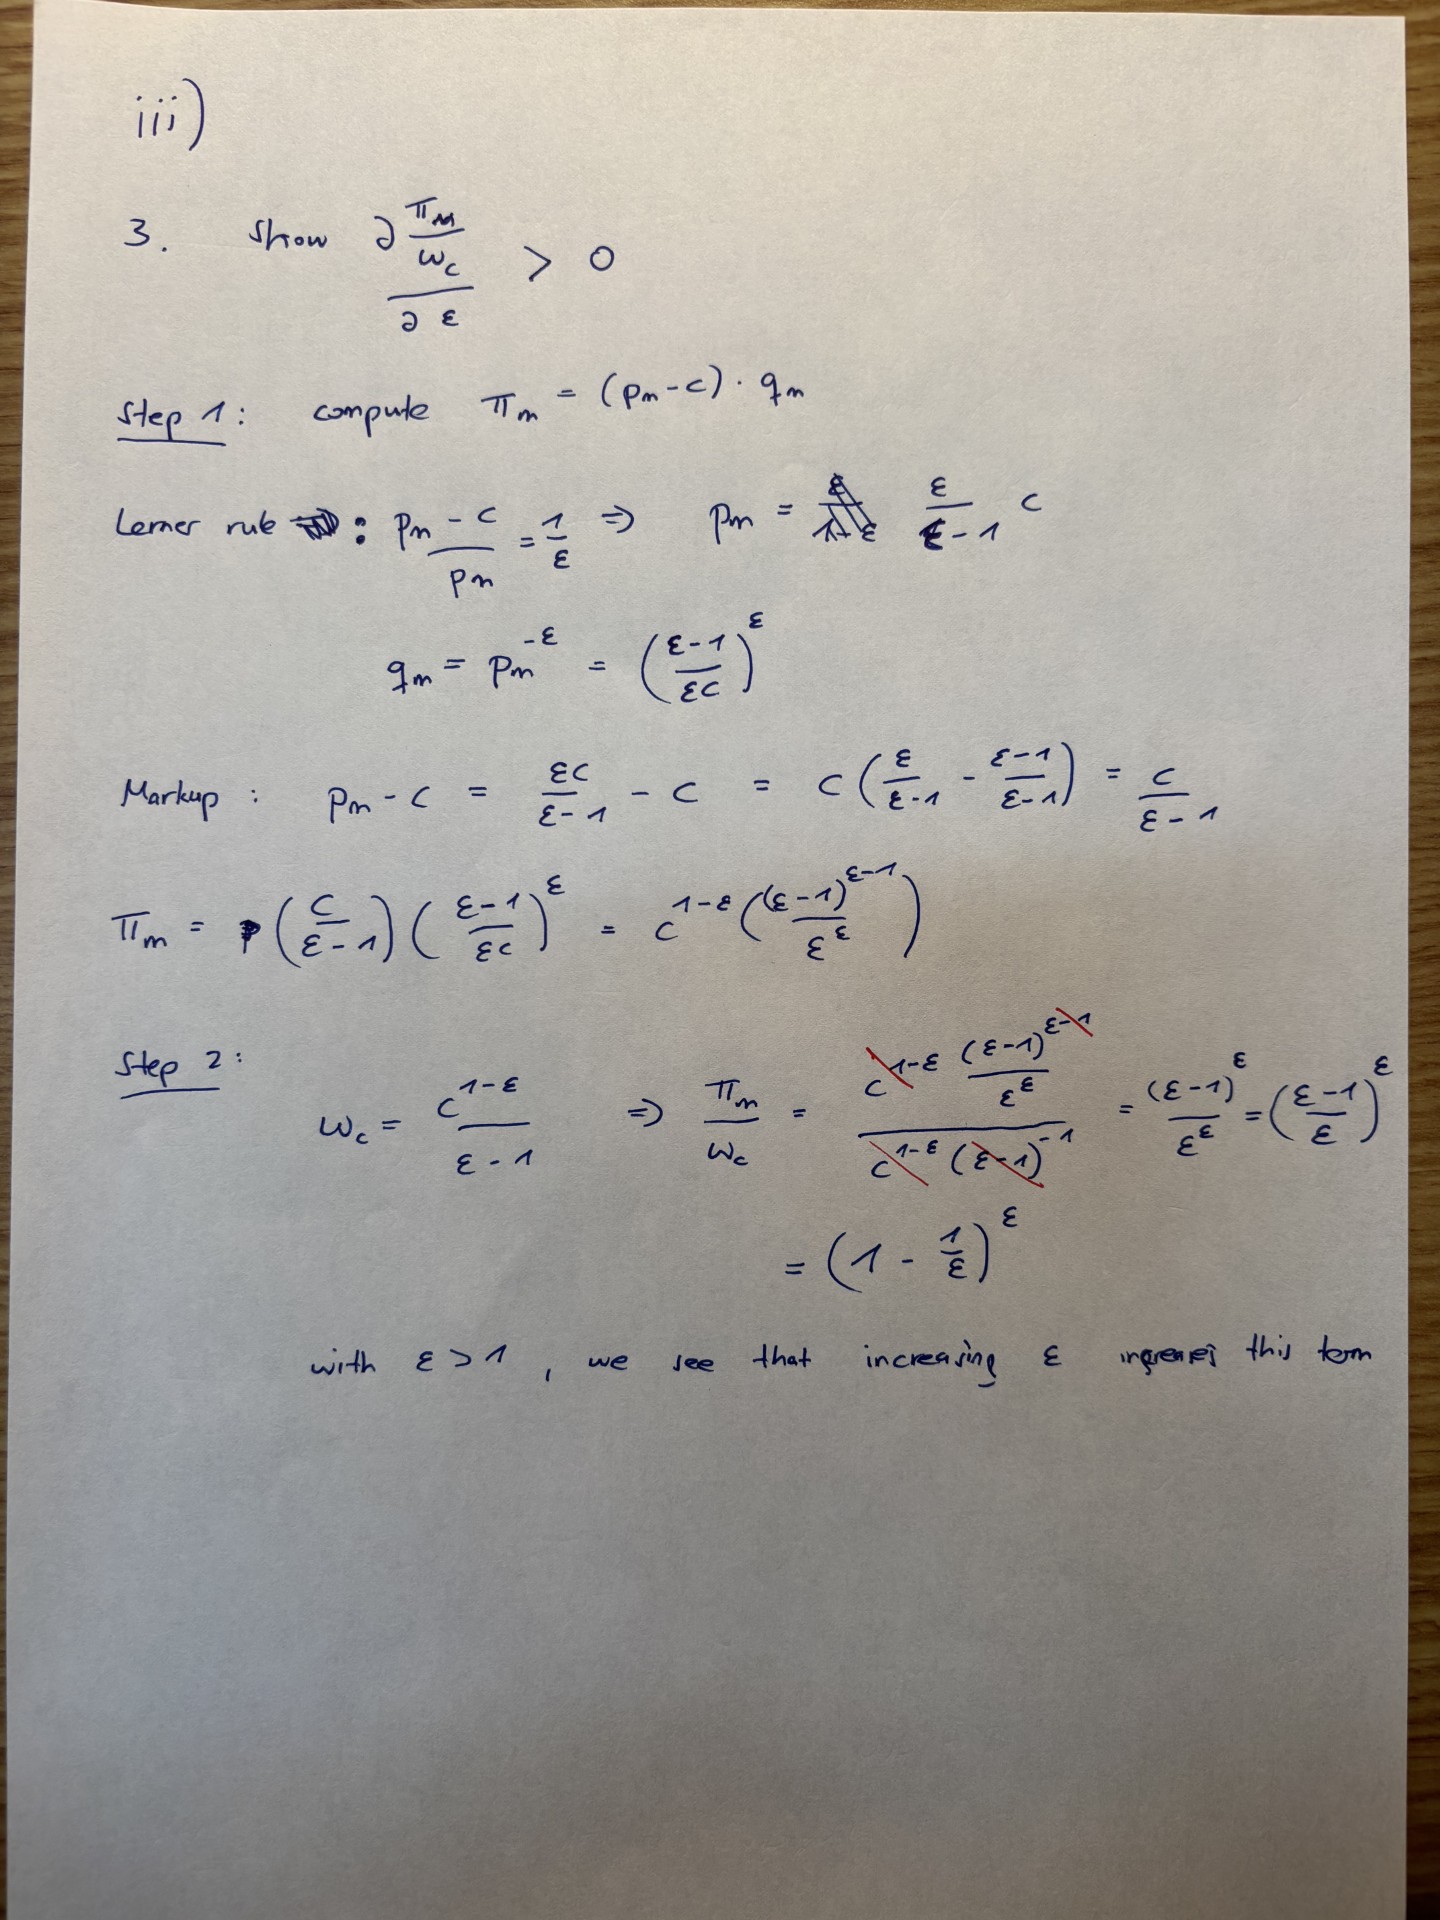 iii)
3. show ∂ (πm / wc) / ∂ε > 0
Step 1: compute πm = (pm - c) · qm
Lerner rule : (pm - c) / pm = 1/ε ⇒ pm = ε/(ε-1) c
qm = pm^(-ε) = ((ε-1)/(εc))^ε
Markup : pm - c = εc/(ε-1) - c = c (ε/(ε-1) - (ε-1)/(ε-1)) = c/(ε-1)
πm = (c/(ε-1)) ((ε-1)/(εc))^ε = c^(1-ε) ((ε-1)^(ε-1) / ε^ε)
Step 2:
wc = c^(1-ε) / (ε-1) ⇒ πm / wc = (c^(1-ε) (ε-1)^(ε-1) / ε^ε) / (c^(1-ε) (ε-1)^(-1)) = (ε-1)^ε / ε^ε = ((ε-1)/ε)^ε
= (1 - 1/ε)^ε
with ε > 1 , we see that increasing ε increases this term